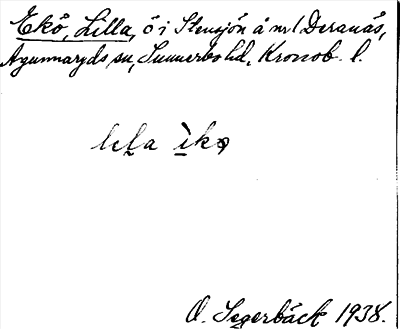 Ekö, Lilla, ö i Stensjön å nr 1 Deranäs,
Agunnaryds sn, Sunnerbo hd, Kronob. l.
lela ìkə
O. Segerbäck 1938.